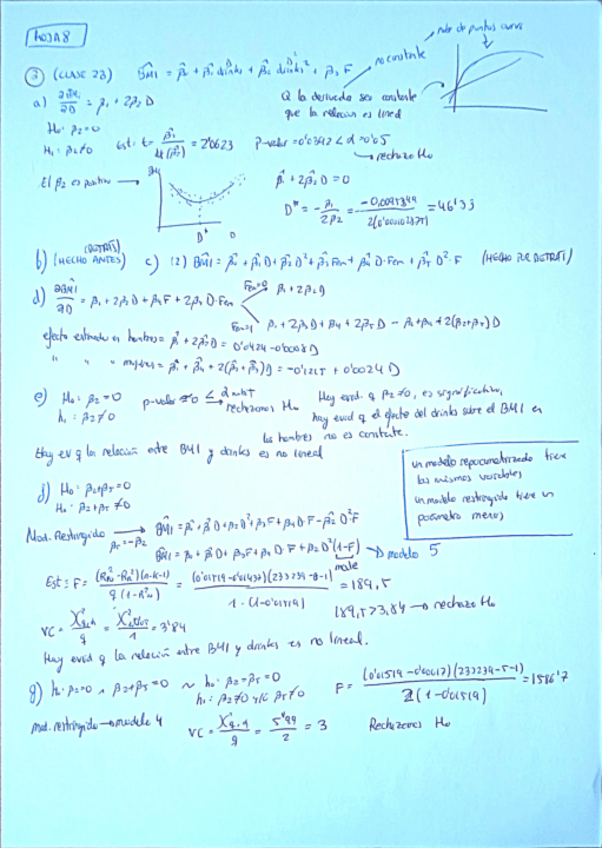 HOJA 8
nube de puntos curva
no constante
③ (CLASE 23) BMÎ = β̂₀ + β̂₁ drinks + β̂₂ drinks² + β₃ F
Q la derivada sea constante
que la relación es lineal
a) ∂BMI/∂D = β₁ + 2β₂D
H₀: β₂=0
H₁: β₂≠0 Est: t = = 2'0623 p-valor = 0'0392 < α = 0'05
→ rechazo H₀
El β₂ es positivo → BMI
β̂₁ + 2β̂₂D = 0
D* = -β₁/2β₂ = = 46'33
D* D
(DETRÁS)
b) (HECHO ANTES) c) (2) BMÎ = β̂₀ + β̂₁D + β̂₂D² + β̂₃Fem + β̂₄D·Fem + β̂₅D²·F (HECHO POR DETRÁS)
d) ∂BMÎ/∂D = β₁ + 2β₂D + β₄F + 2β₅D·Fem
Fem=0 β₁ + 2β₂D
Fem=1 β₁ + 2β₂D + β₄ + 2β₅D = β₁+β₄ + 2(β₂+β₅)D
efecto estimado en hombres = β̂₁ + 2β̂₂D = 0'0424 - 0'0008D
" " " mujeres = β̂₁ + β̂₄ + 2(β̂₂+β̂₅)D = -0'1215 + 0'0024D
e) H₀: β₂ = 0
H₁: β₂ ≠ 0
p-valor ≈ 0 < α
rechazamos H₀
Hay evid. q β₂≠0, es significativo,
hay evid q el efecto del drinks sobre el BMI en
los hombres no es constante.
Hay ev q la relación entre BMI y drinks es no lineal
un modelo reparametrizado tiene
las mismas variables
un modelo restringido tiene un
parámetro menos
f) H₀: β₂+β₅ = 0
H₁: β₂+β₅ ≠ 0
Mod. Restringido → BMÎ = β₀ + β̂₁D + β₂D² + β₃F + β₄D·F - β₂D²F
β₅ = -β₂
BMÎ = β₀ + β̂₁D + β₃F + β₄D·F + β₂D²(1-F) → modelo 5
male
Est: F = (R²ₙᵣ - R²ᵣ)(n-k-1) / q(1-R²ₙᵣ) = / 1·(1-0'01519) = 189,5
VC = = = 3'84
189,5 > 3,84 → rechazo H₀
Hay evid q la relación entre BMI y drinks es no lineal.
g) h₀: β₂=0 ∧ β₂+β₅=0 ~ h₀: β₂=β₅=0
h₁: β₂≠0 y/o β₅≠0
F = / 2(1-0'01519) = 1586'7
Mod. restringido → modelo 4
VC = = 5'99/2 = 3
Rechazamos H₀